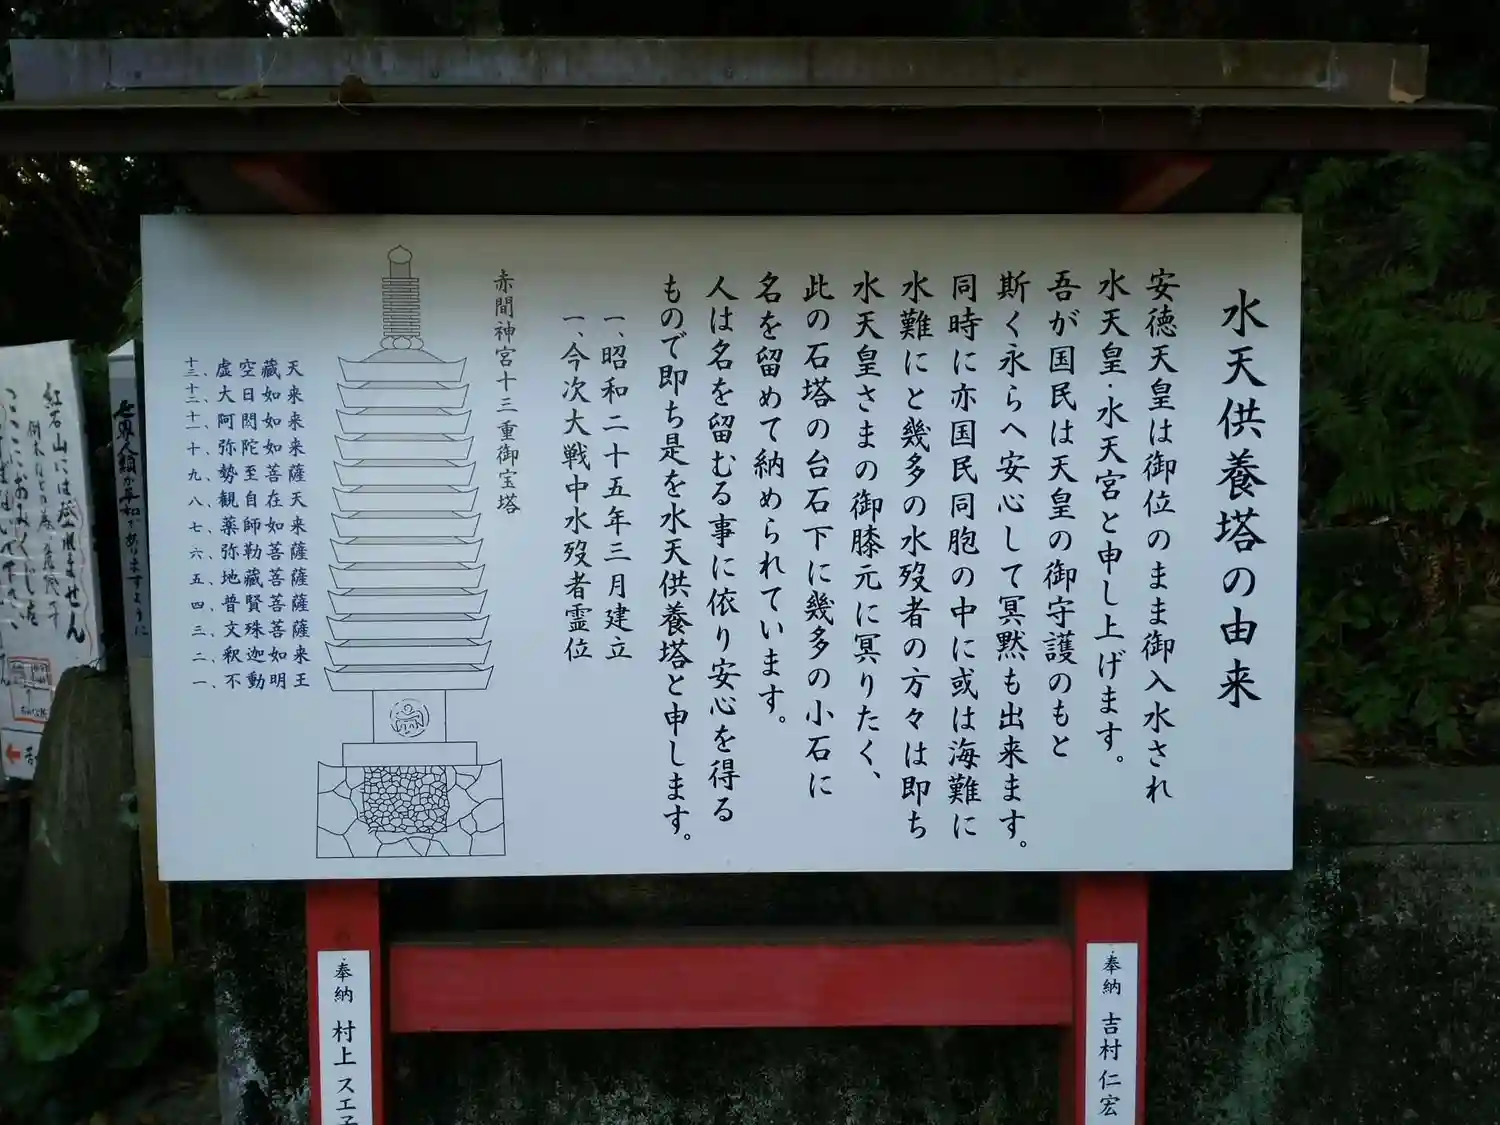 水天供養塔の由来
安徳天皇は御位のまま御入水され
水天皇・水天宮と申し上げます。
吾が国民は天皇の御守護のもと
斯く永らへ安心して冥黙も出来ます。
同時に亦国民同胞の中に或は海難に
水難にと幾多の水歿者の方々は即ち
水天皇さまの御膝元に冥りたく、
此の石塔の台石下に幾多の小石に
名を留めて納められています。
人は名を留むる事に依り安心を得る
もので即ち是を水天供養塔と申します。
一、昭和二十五年三月建立
一、今次大戦中水歿者霊位
赤間神宮十三重御宝塔
十三、虚空藏天
十二、大日如来
十一、阿閦如来
十、弥陀如来
九、勢至菩薩
八、観自在天
七、薬師如来
六、弥勒菩薩
五、地藏菩薩
四、普賢菩薩
三、文殊菩薩
二、釈迦如来
一、不動明王
奉納 吉村仁宏
奉納 村上スエ子
世界人類が平和でありますように
紅石山には
ません